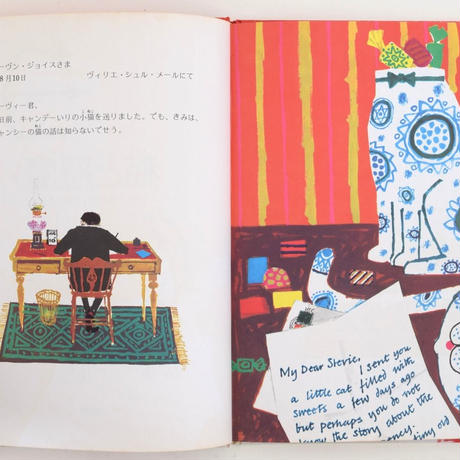 ーヴン・ジョイスさま
8月10日
ヴィリエ・シュル・メールにて
ーヴィー君、
日前、キャンデーいりの小猫を送りました。でも、きみは、
ャンシーの猫の話は知らないでせう。
My Dear Stevie,
I sent you
a little cat filled with
sweets a few days ago
but perhaps you do not
know the story about the
tiny old